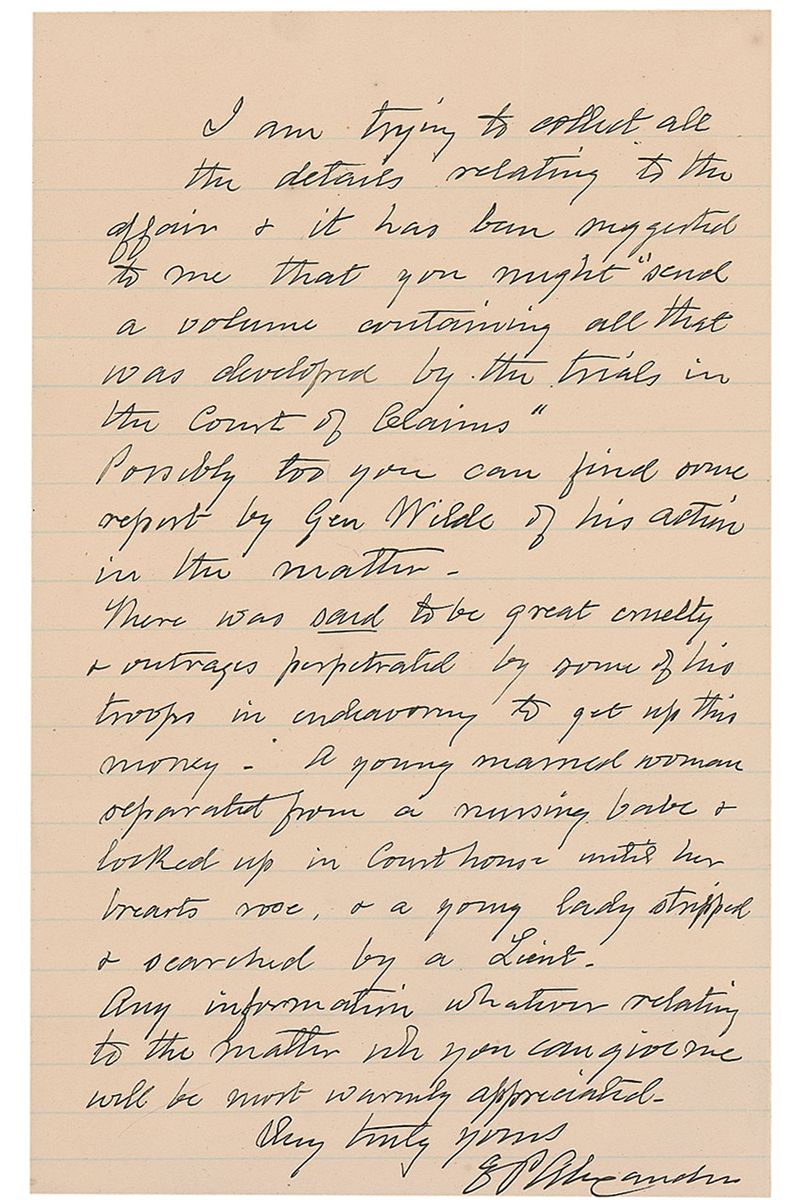 I am trying to collect all
the details relating to the
affair & it has been suggested
to me that you might "send
a volume containing all that
was developed by the trials in
the Court of Claims"
Possibly too you can find some
report by Gen Wilde of his action
in the matter -
There was said to be great cruelty
& outrages perpetrated by some of his
troops in endeavoring to get up this
money - A young married woman
separated from a nursing babe &
locked up in Courthouse until her
breasts rose, & a young lady stripped
& searched by a Lieut -
Any information whatever relating
to the matter wh you can give me
will be most warmly appreciated -
Very truly yours
E P Alexander